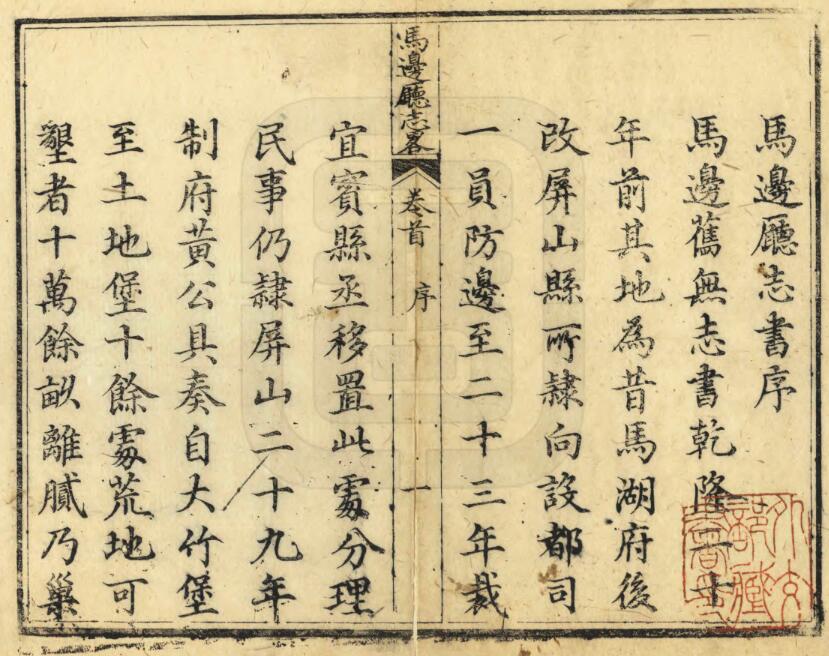 馬邊廳志書序
馬邊舊無志書乾隆二十
年前其地為昔馬湖府後
改屏山縣所隸向設都司
一員防邊至二十三年裁
馬邊廳志畧
卷首
序
一
宜賓縣丞移置此處分理
民事仍隸屏山二十九年
制府黃公具奏自大竹堡
至土地堡十餘處荒地可
墾者十萬餘畝離膩乃巢